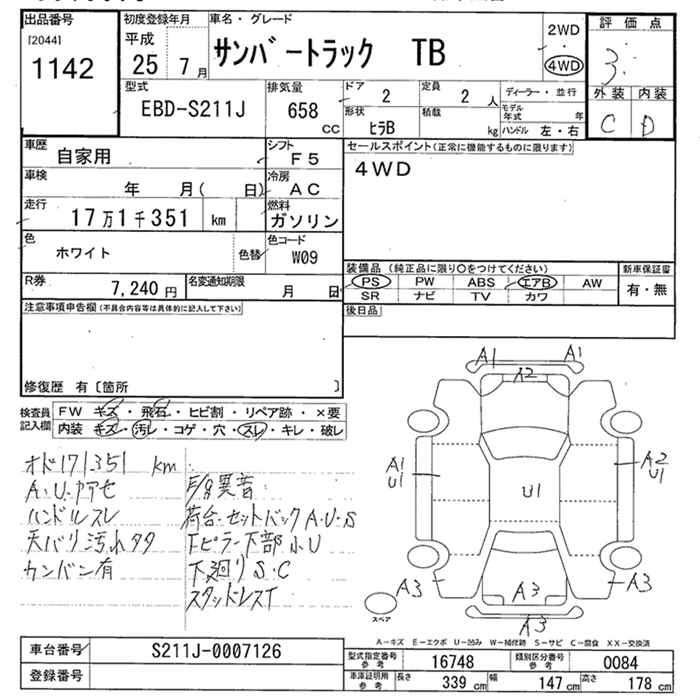 出品番号
[2044]
1142
初度登録年月
平成
25 7月
車名・グレード
サンバートラック TB
2WD
4WD
評価点
3
外装 内装
C D
型式
EBD-S211J
排気量
658 cc
ドア
2
定員
2 人
形状
ヒラB
積載
kg
ディーラー・並行
モデル年式 年
ハンドル 左・右
車歴
自家用
シフト
F5
車検
年 月( 日)
冷房
AC
走行
17万1千351 km
燃料
ガソリン
色
ホワイト
色替
色コード
W09
R券
7,240 円
名変通知期限
月 日
セールスポイント(正常に機能するものに限ります)
4WD
装備品(純正品に限り〇をつけてください)
PS PW ABS エアB AW
SR ナビ TV カワ
新車保証書
有・無
後日品
注意事項申告欄(不具合内容等は具体的に記入して下さい)
修復歴 有〔箇所 〕
検査員記入欄
FW キズ・飛石・ヒビ割・リペア跡・×要
内装 キズ・汚レ・コゲ・穴・スレ・キレ・破レ
オド171351 km
A・U・カアセ
ハンドルスレ
天バリ汚れタタ
カンバン有
F/g異音
荷台・セットバックA・U・S
Fピラー下部小U
下廻りS・C
スタッドレスT
A1 A1
A2
A1
U1
A2
U1
U1
A3 A3 A3
A3
スペア
A-キズ E-エクボ U-凹み W-補修跡 S-サビ C-腐食 XX-交換済
車台番号
S211J-0007126
登録番号
型式指定番号 参考
16748
類別区分番号 参考
0084
車庫証明用 参考
長さ 339 cm
幅 147 cm
高さ 178 cm